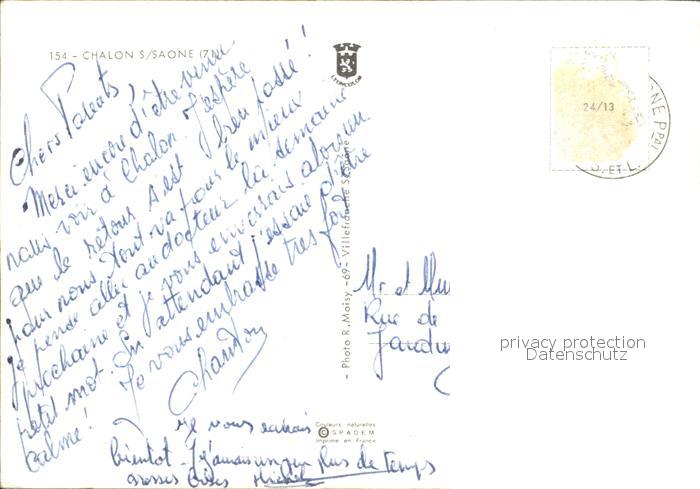 154 - CHALON S/SAONE (71)
LYONCOLOR
Chers Parents,
Merci encore d'être venu
nous voir à Chalon. J'espère
que le retour s'est bien passé!
pour nous tout va pour le mieux
je pense aller au docteur la semaine
prochaine et je vous enverrais alors un
petit mot. En attendant j'essaie d'être
calme! Je vous embrasse très fort
Je vous
bientôt - un peu plus de temps
grosses bises Michel
- Photo R. Moisy -69- Villefranche S/Saône
Couleurs naturelles
© SPADEM
Imprimé en France
24/13
ONE PPAL
S.-ET-L.
Mr et
Rue de
privacy protection
Datenschutz